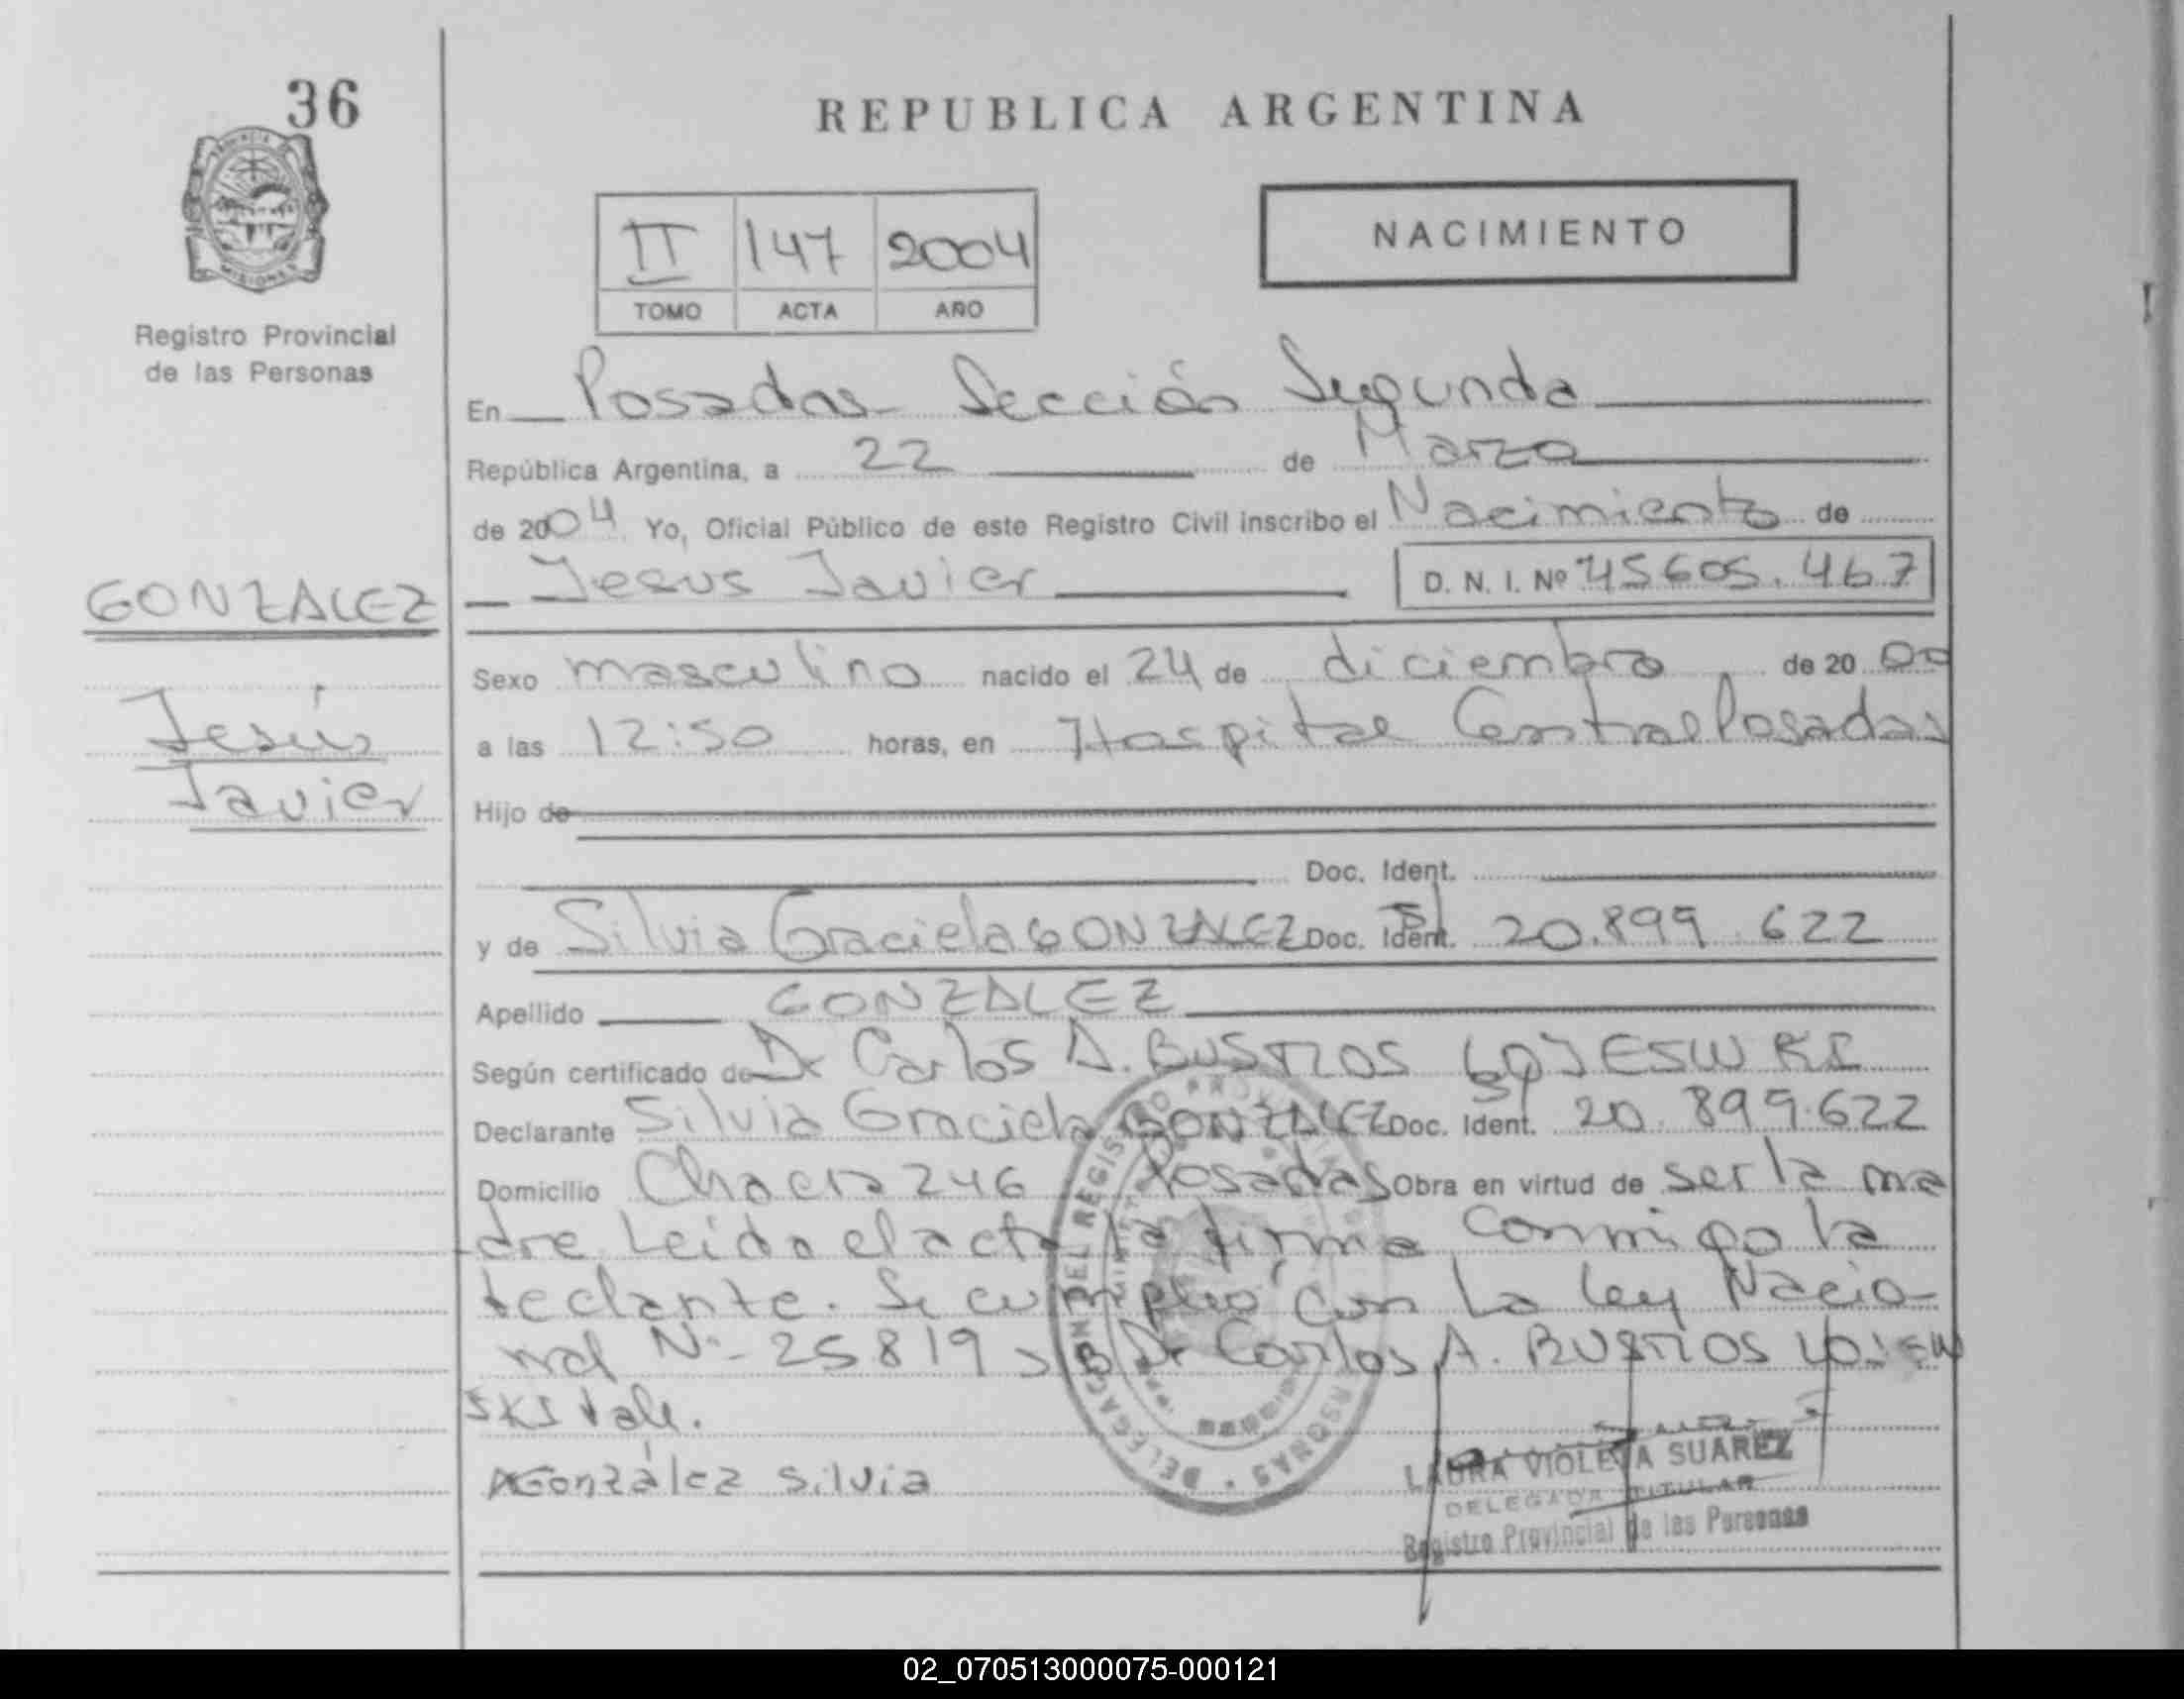 36
REPUBLICA ARGENTINA
PROVINCIA DE
MISIONES
Registro Provincial
de las Personas
II 147 2004
TOMO ACTA AÑO
NACIMIENTO
En Posadas Sección Segunda
República Argentina, a 22 de Marzo
de 2004 Yo, Oficial Público de este Registro Civil inscribo el Nacimiento de
GONZALEZ
Jesús
Javier
Jesus Javier D. N. I. Nº 45605.467
Sexo masculino nacido el 24 de diciembre de 20 00
a las 12:50 horas, en Hospital Central Posadas
Hijo de
Doc. Ident.
y de Silvia Graciela GONZALEZ Doc. Ident. 20.899 622
Apellido GONZALEZ
Según certificado de Dr Carlos A. BUSTIOS
Declarante Silvia Graciela GONZALEZ Doc. Ident. 20.899.622
Domicilio Chacra 246 Posadas Obra en virtud de ser la ma
dre Leida el acta la firma conmigo la
Se cumplió con La Ley Nacio
nal Nº 25819 Dr Carlos A. BUSTIOS
SKI Vale.
González Silvia
DELEGACION DEL REGISTRO PERSONAS
LAURA VIOLETA SUAREZ
DELEGADA TITULAR
Registro Provincial de las Personas
02_070513000075-000121